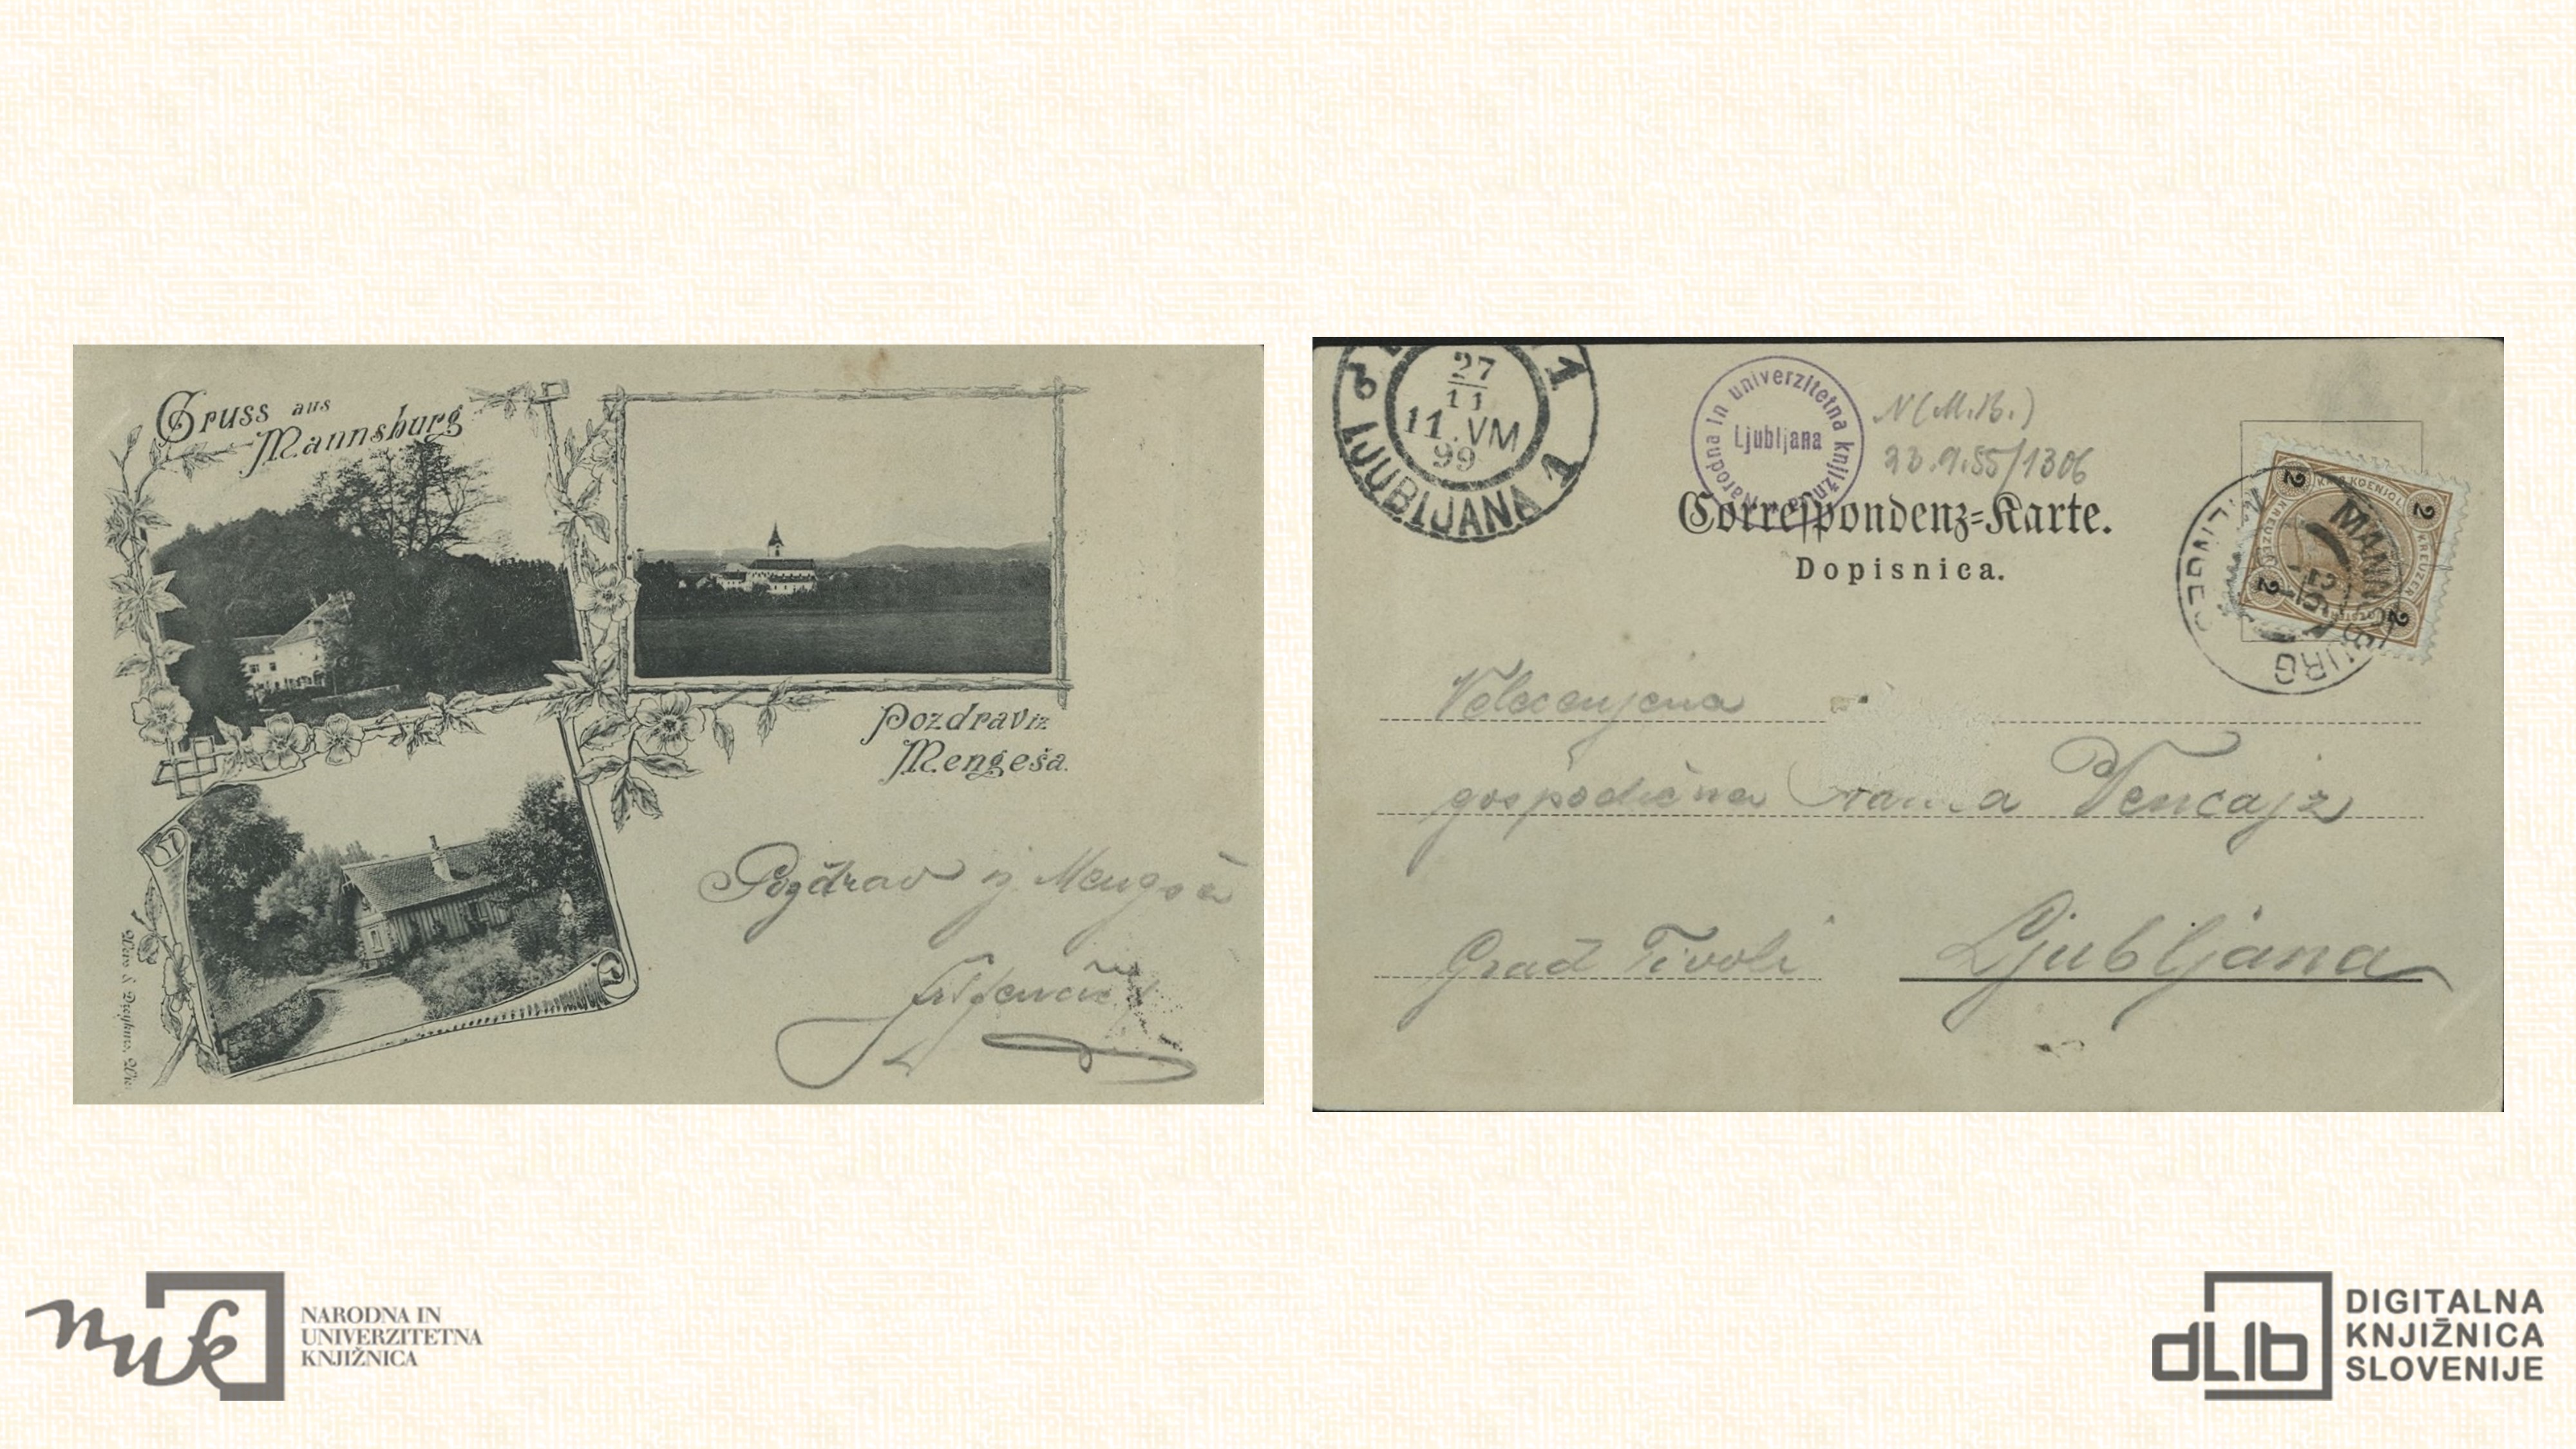 Gruss aus
Mannsburg
Pozdrav iz
Mengeša.
Pozdrav iz Mengša
27
11
11.VM
99
LJUBLJANA 1
Narodna in univerzitetna knjižnica
Ljubljana
N(M.B.)
23.9.55/1306
Correspondenz-Karte.
Dopisnica.
2 2 2 2
MANNSBURG
Velecenjena
gospodična Vencajz
Grad Tivoli Ljubljana
nuk
NARODNA IN
UNIVERZITETNA
KNJIŽNICA
dLib
DIGITALNA
KNJIŽNICA
SLOVENIJE